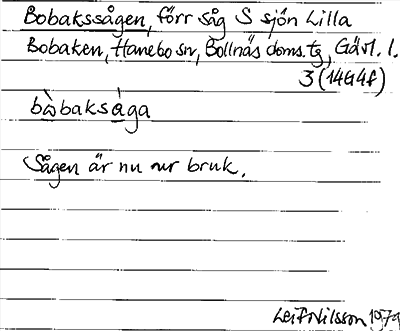 Bobakssågen, förr såg S sjön Lilla
Bobaken, Hanebo sn, Bollnäs doms. tg, Gävl. l.
3 (14G4f)
bò̀baksàga
Sågen är nu ur bruk.
Leif Nilsson 1979